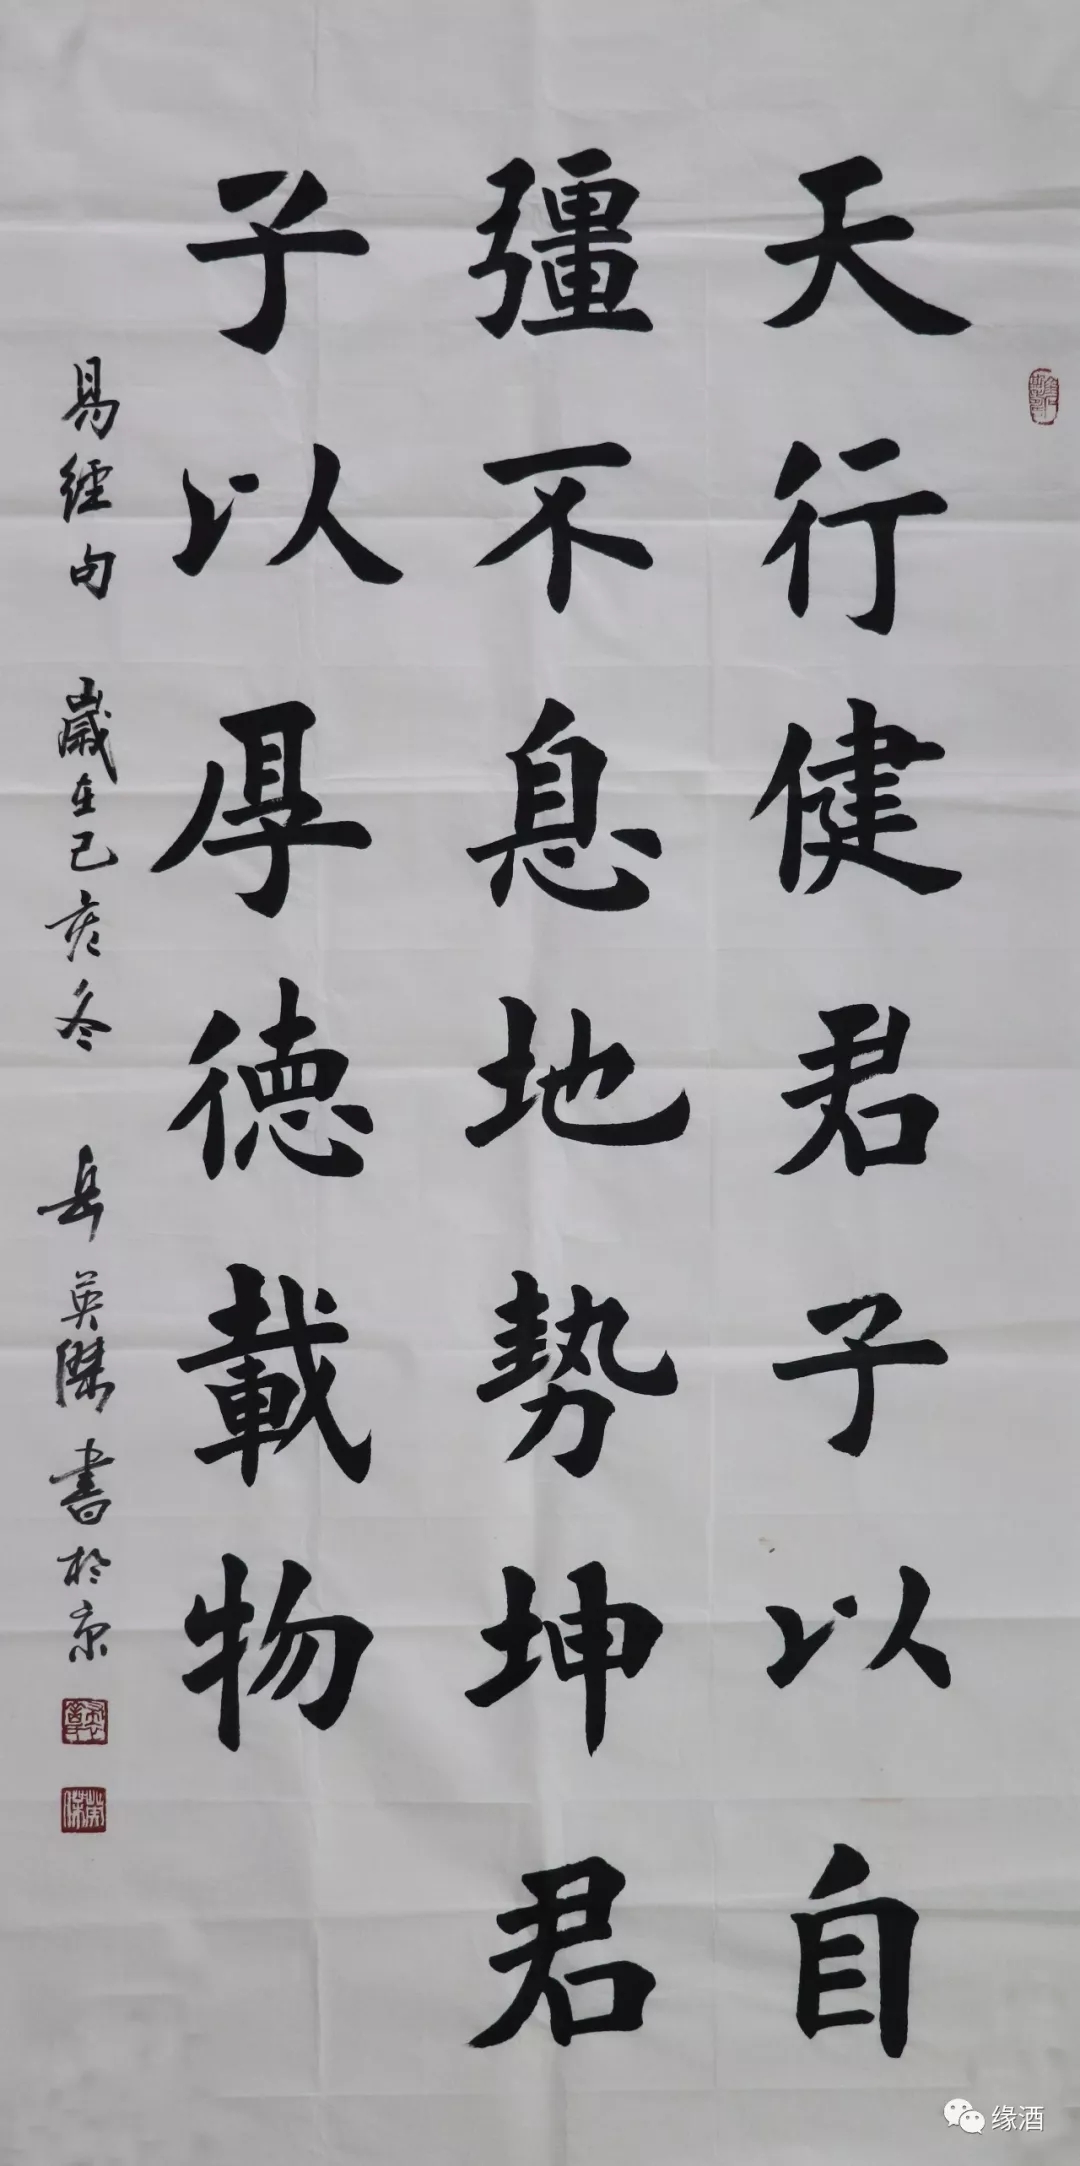 天行健君子以自
彊不息地勢坤君
子以厚德載物
易經句 歲在己亥冬 岳英傑書於京
缘酒